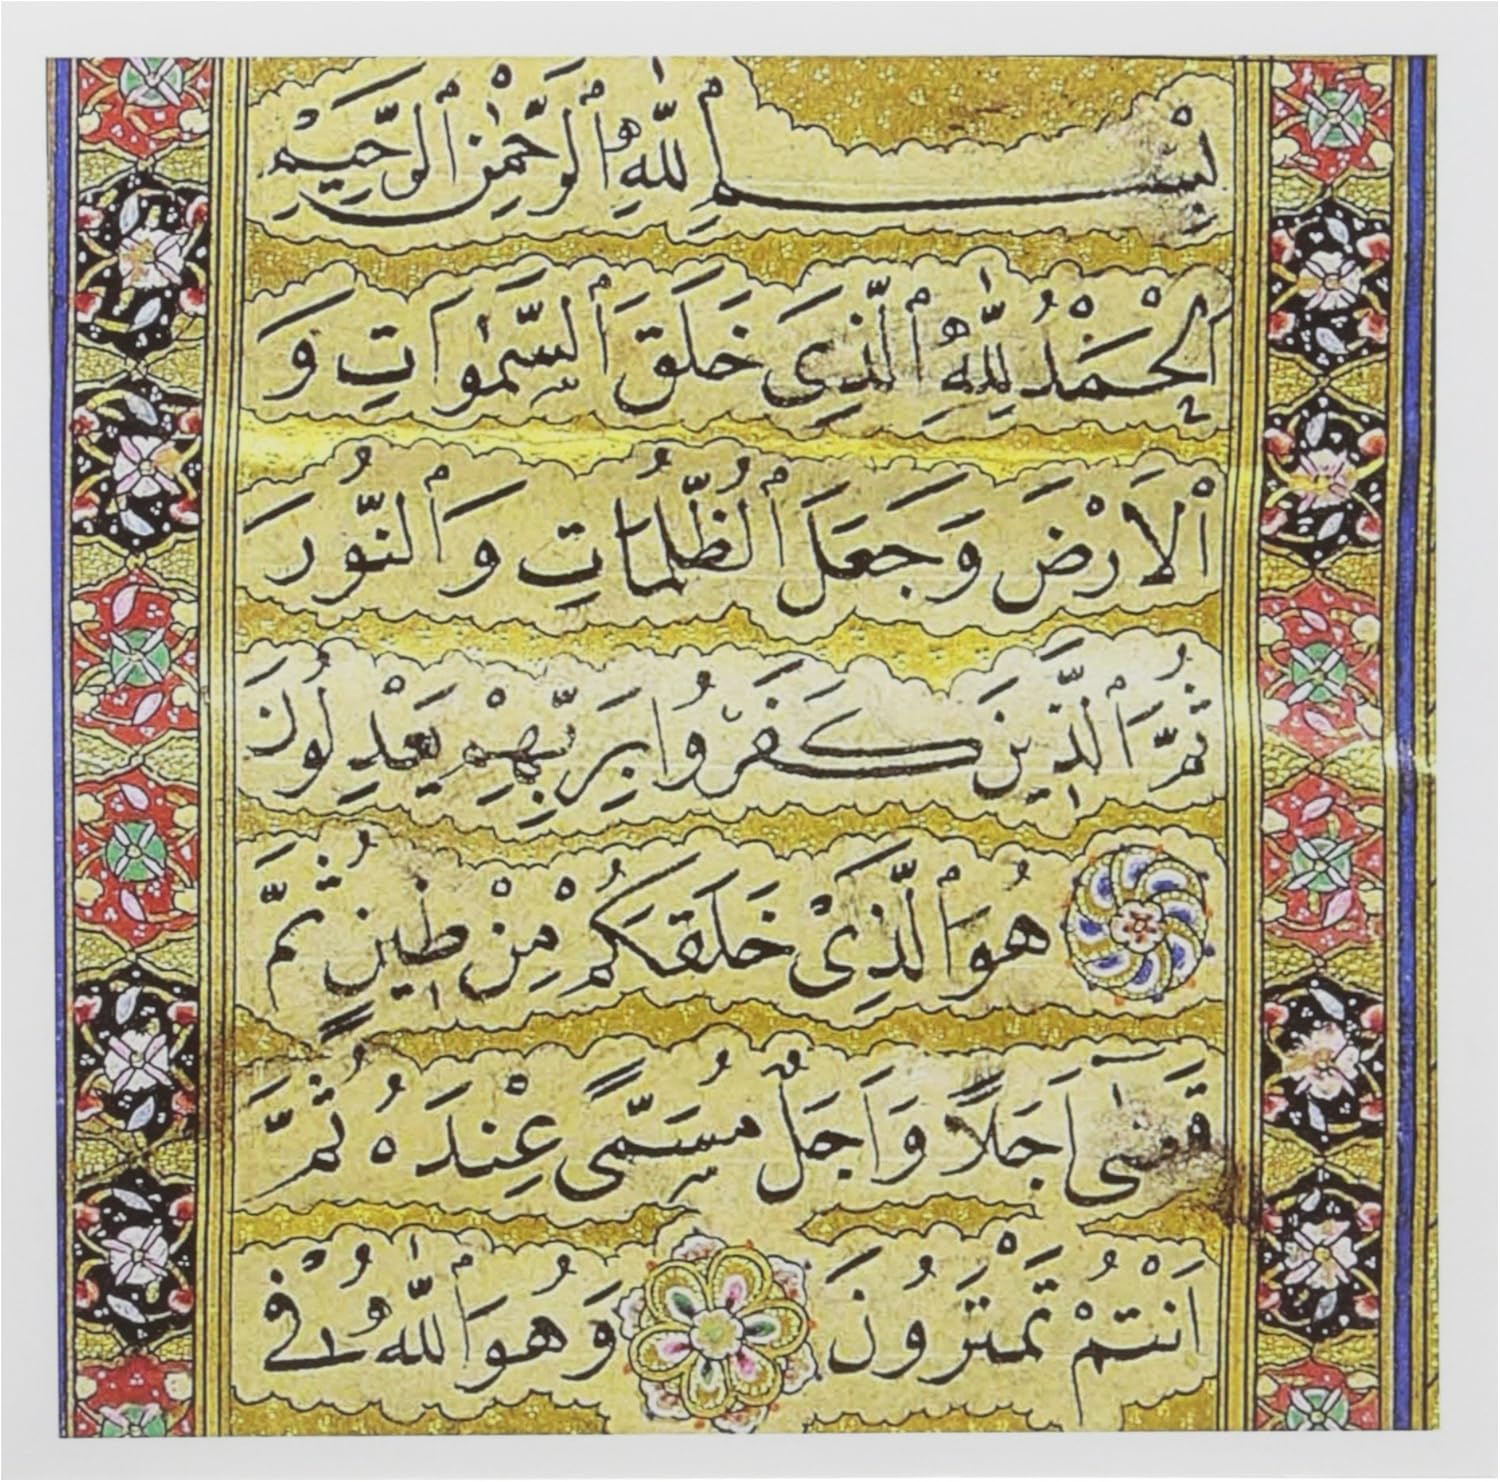 بِسْمِ ٱللّٰهِ ٱلرَّحْمٰنِ ٱلرَّحِيْمِ
اَلْحَمْدُ لِلّٰهِ ٱلَّذِى خَلَقَ ٱلسَّمٰوَاتِ وَ
ٱلْاَرْضَ وَجَعَلَ ٱلظُّلُمَاتِ وَٱلنُّورَ
ثُمَّ ٱلَّذِينَ كَفَرُوا بِرَبِّهِمْ يَعْدِلُونَ
هُوَ ٱلَّذِىْ خَلَقَكُمْ مِنْ طِينٍ ثُمَّ
قَضٰٓى اَجَلًا وَاَجَلٌ مُسَمًّى عِنْدَهُ ثُمَّ
اَنْتُمْ تَمْتَرُونَ وَهُوَ ٱللّٰهُ فِى